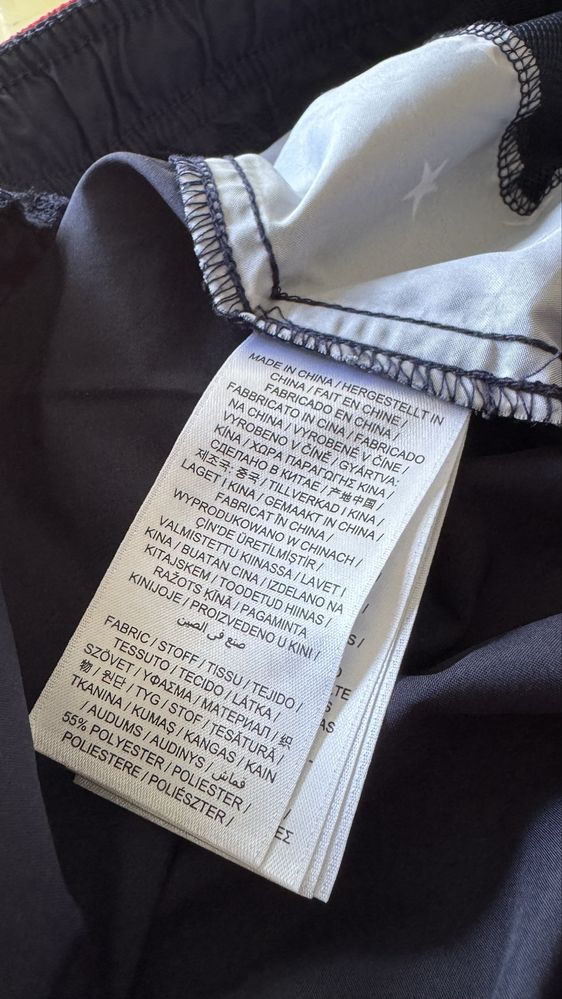 MADE IN CHINA / HERGESTELLT IN
CHINA / FAIT EN CHINE /
FABRICADO EN CHINA /
FABBRICATO IN CINA / FABRICADO
NA CHINA / VYROBENÉ V ČÍNE /
VYROBENO V ČÍNĚ / GYÁRTVA:
KÍNA / ΧΩΡΑ ΠΑΡΑΓΩΓΗΣ ΚΙΝΑ /
СДЕЛАНО В КИТАЕ / 产地中国 /
제조국: 중국 / TILLVERKAD I KINA /
LAGET I KINA / GEMAAKT IN CHINA /
FABRICAT ÎN CHINA /
WYPRODUKOWANO W CHINACH /
ÇİN'DE ÜRETİLMİŞTİR /
VALMISTETTU KIINASSA / LAVET I
KINA / BUATAN CINA / IZDELANO NA
KITAJSKEM / TOODETUD HIINAS /
RAŽOTS ĶĪNĀ / PAGAMINTA
KINIJOJE / PROIZVEDENO U KINI /
صنع في الصين
FABRIC / STOFF / TISSU / TEJIDO /
TESSUTO / TECIDO / LÁTKA /
SZÖVET / ΥΦΑΣΜΑ / МАТЕРИАЛ / 织
物 / 원단 / TYG / STOF / ȚESĂTURĂ /
TKANINA / KUMAŞ / KANGAS / KAIN
/ AUDUMS / AUDINYS / قماش
55% POLYESTER / POLIÉSTER /
POLIESTERE / POLIÉSZTER /
TE
AS
ΕΣ